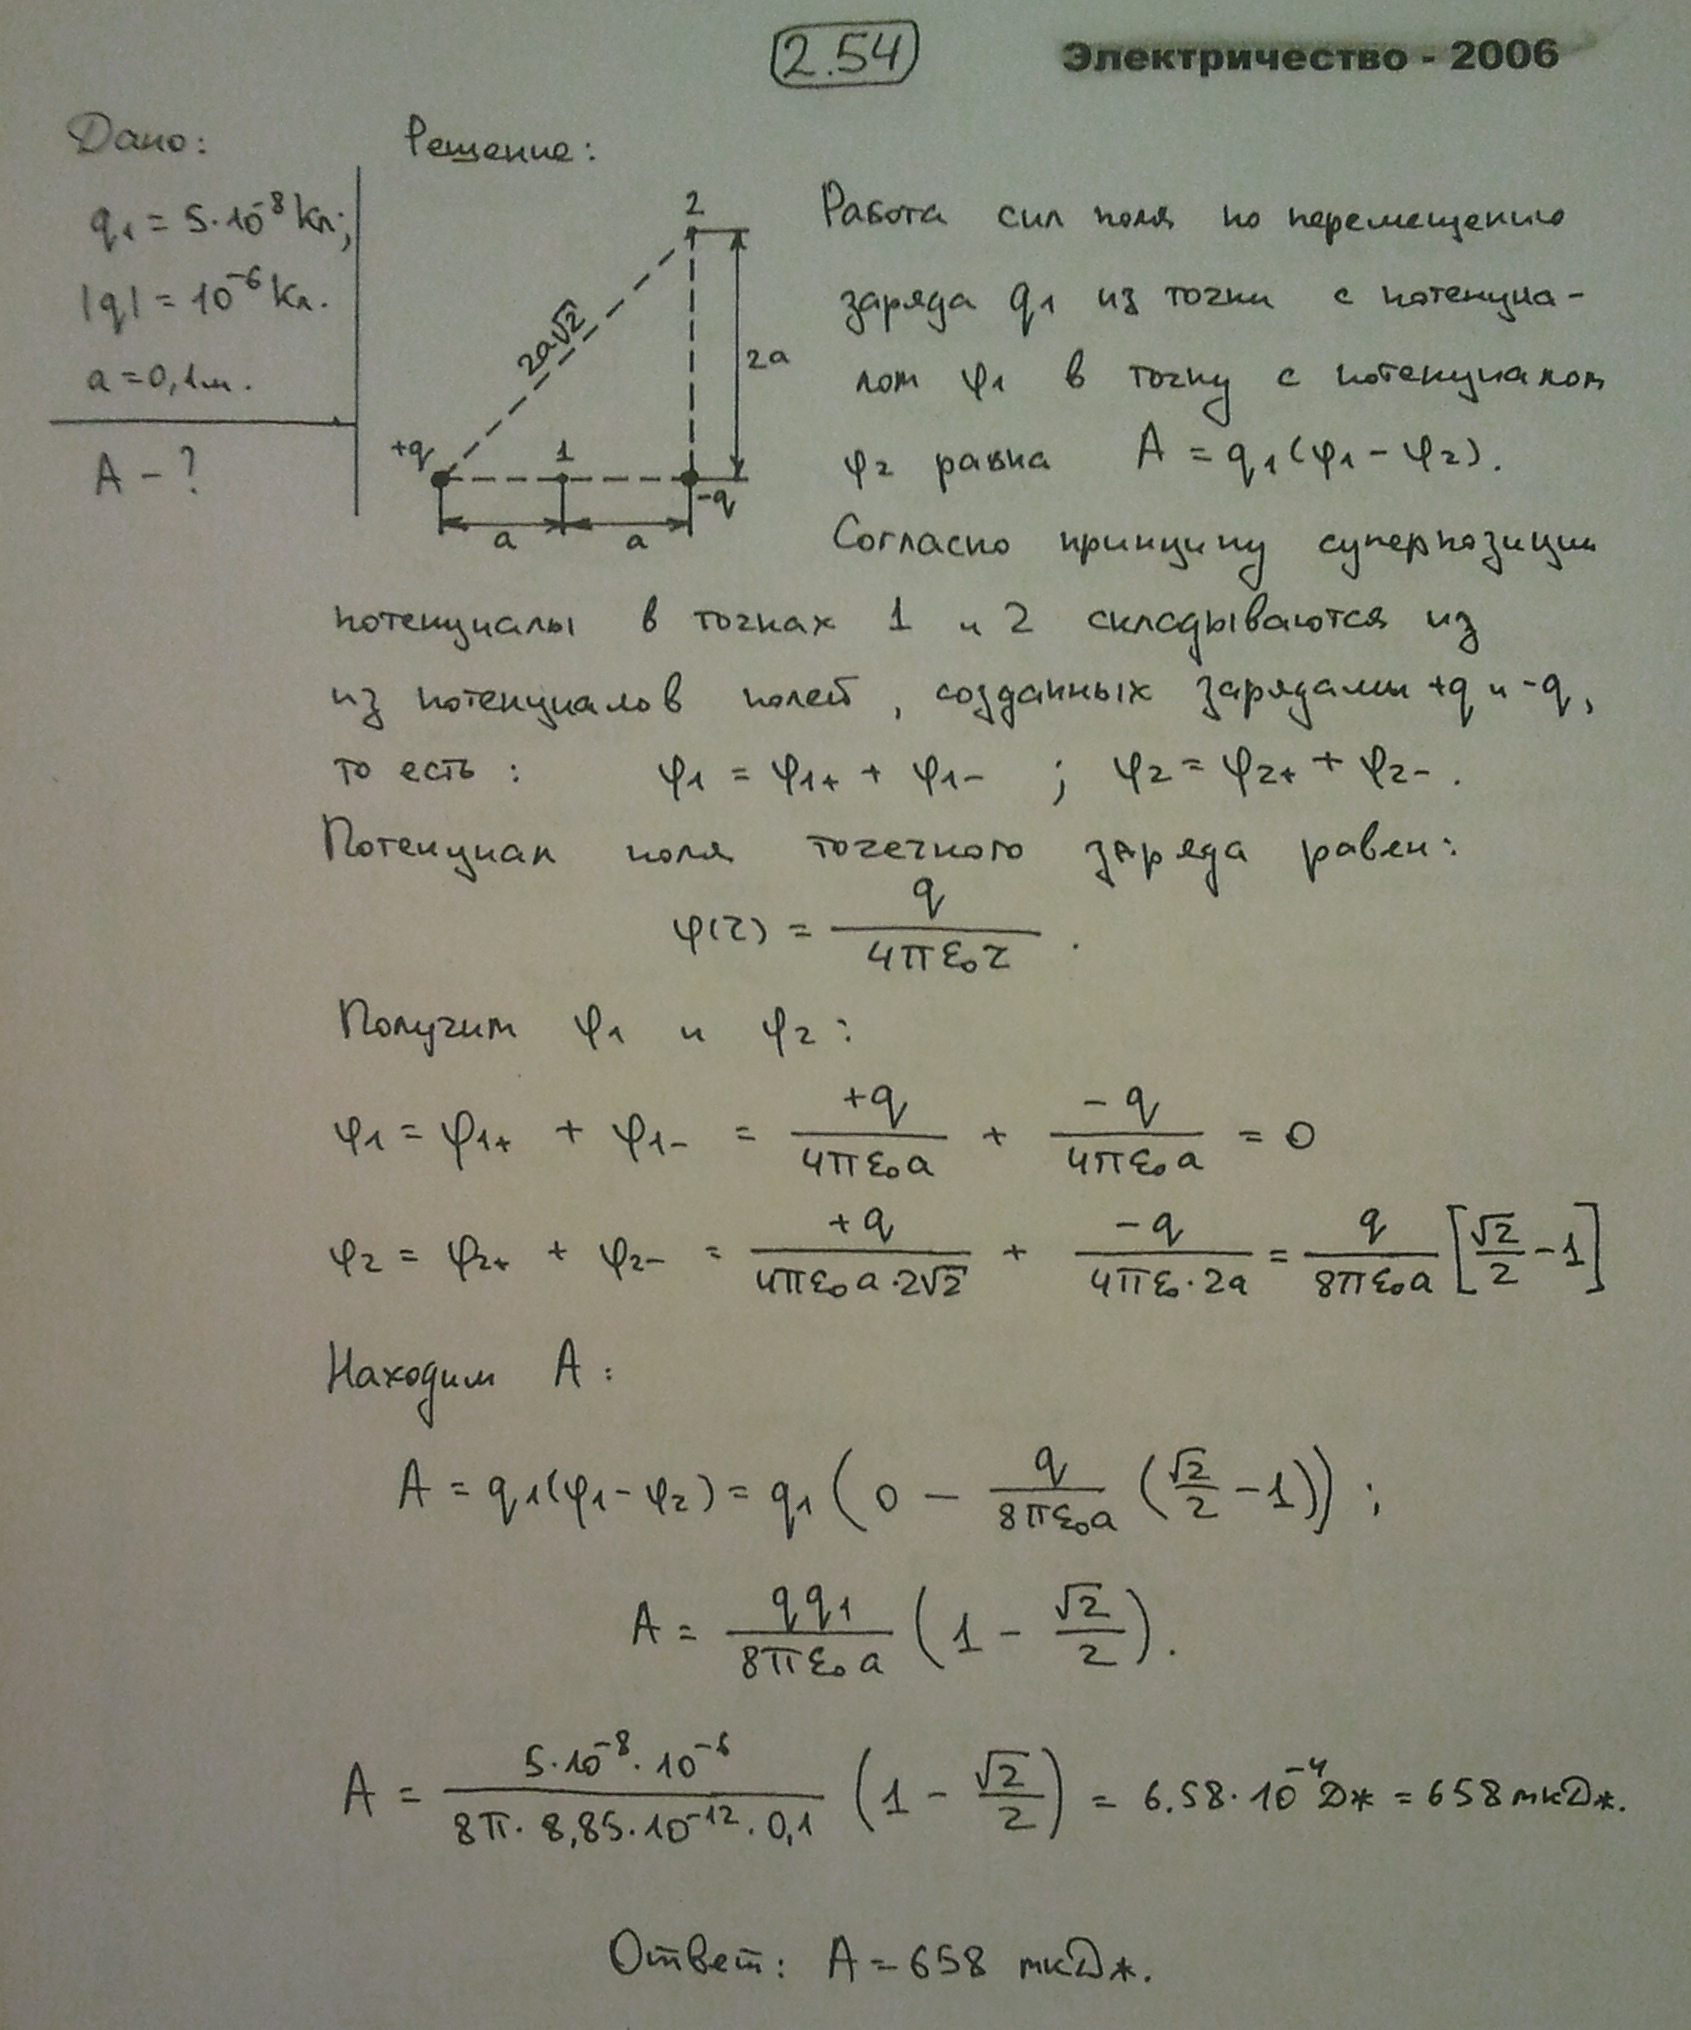 2.54 Электричество - 2006
Дано: Решение:
q₁ = 5·10⁻⁸ Кл;
|q| = 10⁻⁶ Кл.
a = 0,1 м.
A - ?
2
2a
2a√2
+q 1 -q
a a
Работа сил поля по перемещению
заряда q₁ из точки с потенциа-
лом φ₁ в точку с потенциалом
φ₂ равна A = q₁(φ₁ - φ₂).
Согласно принципу суперпозиции
потенциалы в точках 1 и 2 складываются из
из потенциалов полей, созданных зарядами +q и -q,
то есть: φ₁ = φ₁₊ + φ₁₋ ; φ₂ = φ₂₊ + φ₂₋.
Потенциал поля точечного заряда равен:
φ(r) = q / (4πε₀r).
Получим φ₁ и φ₂:
φ₁ = φ₁₊ + φ₁₋ = +q / (4πε₀a) + -q / (4πε₀a) = 0
φ₂ = φ₂₊ + φ₂₋ = +q / (4πε₀a·2√2) + -q / (4πε₀·2a) = q / (8πε₀a) [√2/2 - 1]
Находим A:
A = q₁(φ₁ - φ₂) = q₁ (0 - q / (8πε₀a) (√2/2 - 1));
A = qq₁ / (8πε₀a) (1 - √2/2).
A = 5·10⁻⁸·10⁻⁶ / (8π·8,85·10⁻¹²·0,1) (1 - √2/2) = 6.58·10⁻⁴ Дж = 658 мкДж.
Ответ: A = 658 мкДж.